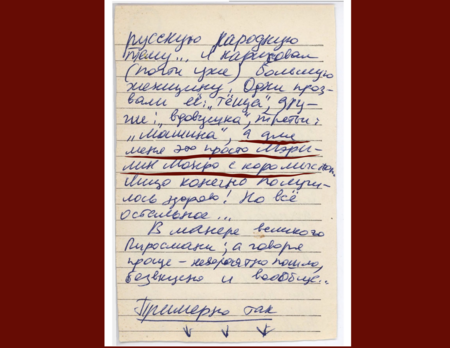 русскую народную
тему... Я нарисовал
(почти уже) большую
женщину. Одни проз-
вали её: "тёща", дру-
гие: вдовушка", третьи:
"Машина", а для
меня это просто Мэри-
лин Монро с коромыслом.
Лицо конечно получи-
лось здорово! Но всё
остальное...
В манере великого
Пиросмани; а говоря
проще - невероятно пошло,
безвкусно и вообще...
Примерно так